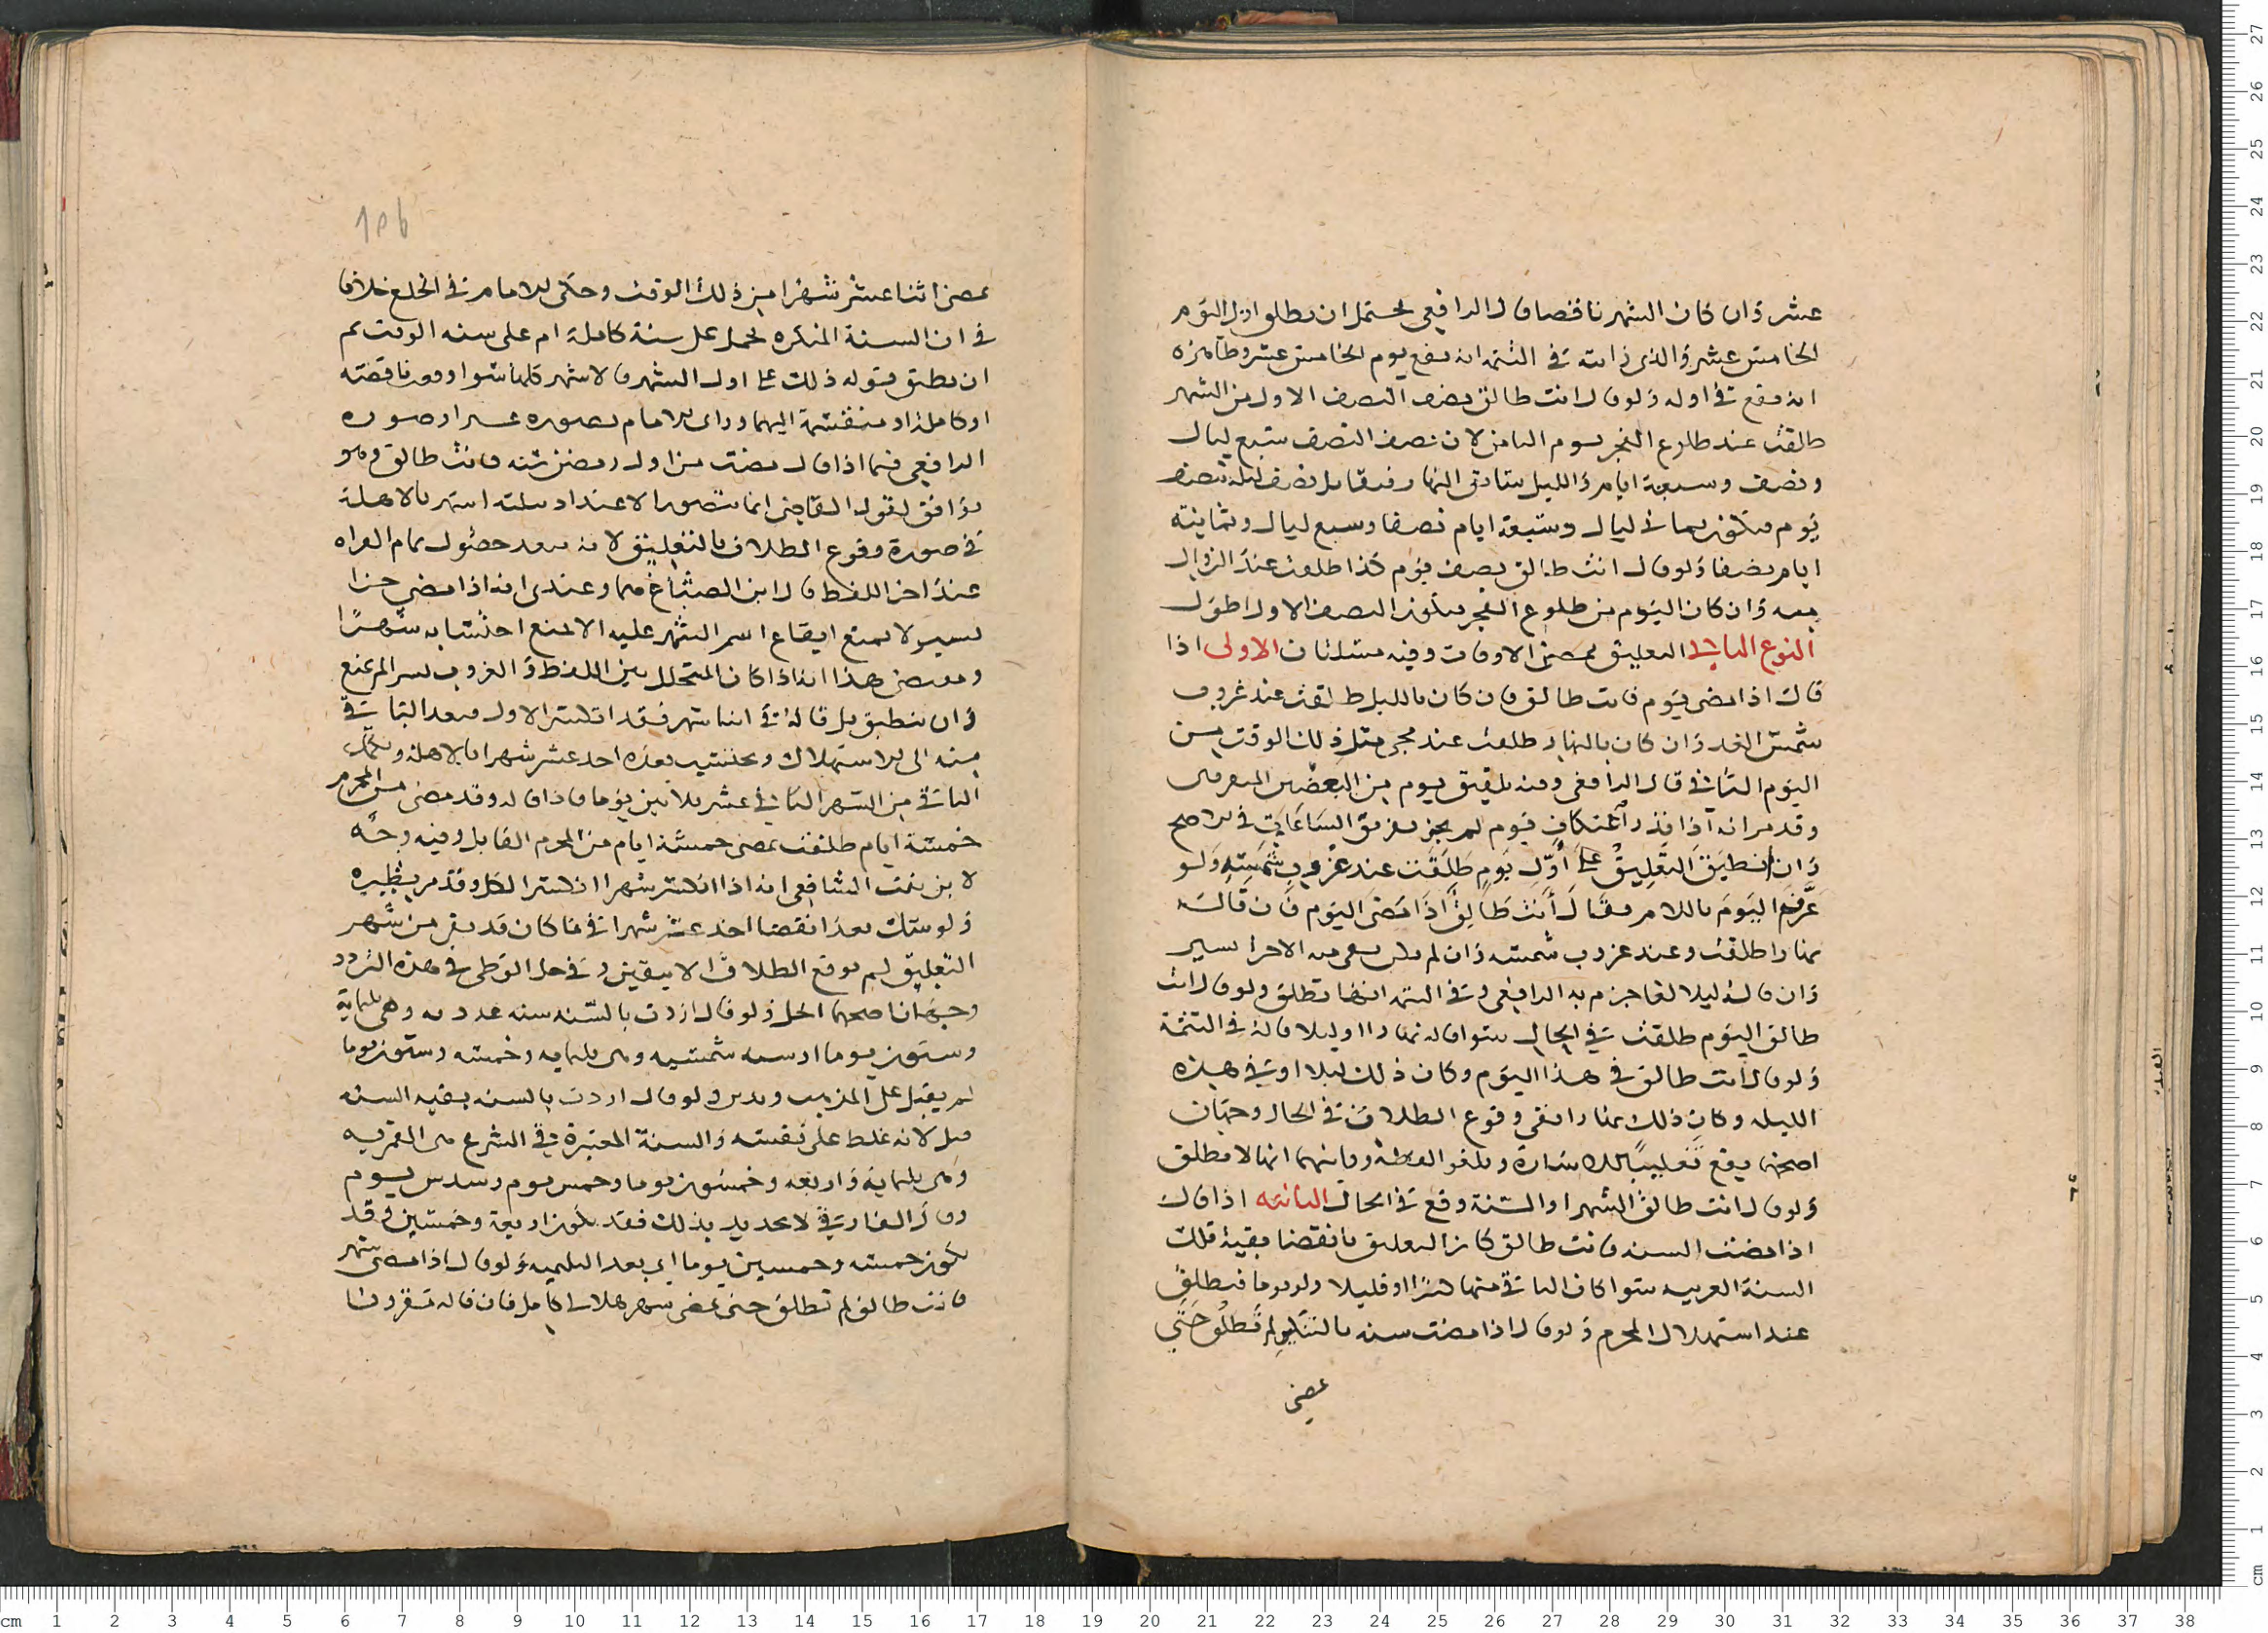 عشر وان كان الشهر ناقصا قال الرافعي يحتمل ان يطلق اول اليوم
الخامس عشر والذي رايته في التتمه انه يقع يوم الخامس عشر وظاهره
انه يقع في اوله ولو قال انت طالق نصف النصف الاول من الشهر
طلقت عند طلوع الفجر يوم الثامن لان نصف النصف سبع ليال
ونصف وسبعة ايام والليل سابق النهار فيقابل نصف ليله بنصف
يوم فيكون ثماني ليال وسبعة ايام نصفا وسبع ليال وثمانية
ايام نصفا ولو قال انت طالق نصف يوم كذا طلقت عند الزوال
منه وان كان اليوم من طلوع الفجر فيكون النصف الاول اطول
النوع الثاني التعليق بمضي الاوقات وفيه مسئلتان الاولى اذا
قال اذا مضى يوم فانت طالق فان كان بالليل طلقت عند غروب
شمس الغد وان كان بالنهار طلقت عند مجي مثل ذلك الوقت من
اليوم الثاني قال الرافعي وفيه تلفيق يوم من البعضين المتفرقين
وقد مر انه اذا نذر اعتكاف يوم لم يجز تفريق الساعات في الاصح
وان انطبق التعليق على أول يوم طلقت عند غروب شمسه ولو
عرف اليوم باللام فقال أنت طالق اذا مضى اليوم فان قاله
نهارا طلقت عند غروب شمسه وان لم يكن بقي منه الا جزا يسير
وان قاله ليلا لغا جزم به الرافعي وفي التتمه انها تطلق ولو قال انت
طالق اليوم طلقت في الحال سوا قاله نهارا او ليلا قاله في التتمة
ولو قال أنت طالق في هذا اليوم وكان ذلك ليلا او في هذه
الليله وكان ذلك نهارا ففي وقوع الطلاق في الحال وجهان
اصحهما يقع تغليبا للاشارة وتلغو اللفظة وثانيهما انها لا تطلق
ولو قال انت طالق الشهر او السنة وقع في الحال الثانيه اذا قال
اذا مضت السنه فانت طالق كان التعليق بانقضا بقية تلك
السنة العربيه سوا كان الباقي منها كثيرا او قليلا ولو يوما فيطلق
عند استهلال المحرم ولو قال اذا مضت سنه بالتنكير لم تطلق حتى
يمضي
يمضي اثنا عشر شهرا من ذلك الوقت وحكى الامام في الخلع خلافا
في ان السنة المنكره تحمل على سنة كاملة ام على سنه الوقت ثم
ان ينطبق قوله ذلك على اول الشهر فالاشهر كلها سوا وقعت ناقصه
او كاملة او منقسمة اليهما وراى الامام تصويره عسرا وصوره
الرافعي فيما اذا قال مضت من اول رمضان سنه فانت طالق وهو
يوافق لقول القاضي انما يتصور الاعتداد بثلثه اشهر بالاهلة
في صورة وقوع الطلاق بالتعليق لانه بعد حصول تمام القراه
عند اخر اللفظ قال ابن الصباغ هما وعندي انه اذا مضى جزا
يسير لا يمنع ايقاع اسم الشهر عليه الا يمنع احتسابه شهرًا
ومقتضى هذا انه اذا كان المتخلل بين اللفظ والغروب يسير لم يمنع
وان ينطبق بل قاله في اثنا شهر فقد انكسر الاول فيعد الباقي
منه الى الاستهلال ويحتسب بعده احد عشر شهرا بالاهلة ويكمل
الباقي من الشهر الثاني عشر ثلاثين يوما فاذا قاله وقد مضى من المحرم
خمسة ايام طلقت بمضي خمسة ايام من المحرم القابل وفيه وجه
لابن بنت الشافعي انه اذا انكسر شهرا انكسر الكل وقد مر نظيره
ولو شك بعد انقضا احد عشر شهرا في ما كان قد بقي من شهر
التعليق لم يوقع الطلاق الا بيقين وفي حل الوطي في هذه التردد
وجهان اصحهما الحل ولو قال اردت بالسنه سنه عدديه وهي ثلثماية
وستون يوما او سنه شمسيه وهي ثلثمايه وخمسه وستون يوما
لم يقبل على المذهب ويدين ولو قال اردت بالسنه بقيه السنه
قبل لانه غلظ على نفسه والسنة المعتبرة في الشرع هي القمريه
وهي ثلثماية واربعه وخمسون يوما وخمس يوم وسدس يوم
وقال الفارقي لا تحديد بذلك فقد يكون اربعة وخمسين وقد
يكون خمسه وخمسين يوما اي بعد الثلثميه ولو قال اذا مضى شهر
فانت طالق لم تطلق حتى يمضي شهر هلالي كامل فان قاله مقرونا